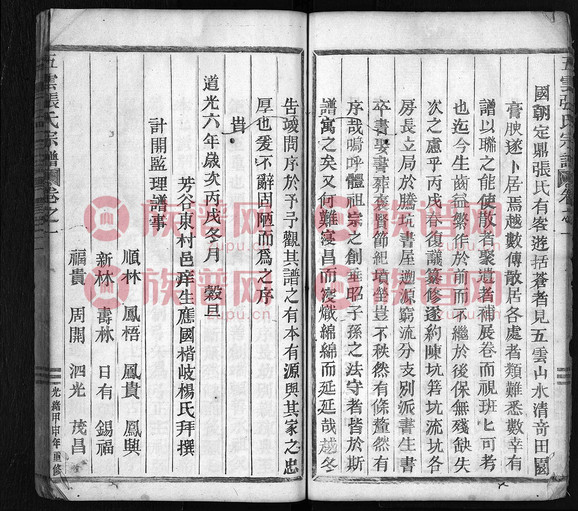 五雲張氏宗譜圖卷之一
國朝定鼎張氏有客遊括蒼者見五雲山水清奇田園
膏腴遂卜居焉越數傳散居各處者類難悉數幸有
譜以聯之能使散者聚遺者補展卷而視班匕可考
也迄今生齒益繁作於前而不繼於後保無殘缺失
次之慮乎丙戌春復議纂修遂約陳坑箬坑流坑各
房長立局於騰坑書屋遡源窮流分支別派書生書
卒書娶書葬褒賢節紀墳塋豈不秩然有條釐然有
序哉嗚呼體祖宗之創垂昭子孫之法守者皆於斯
譜寓之矣又何難寖昌而寖熾綿綿而延延哉越冬
告竣問序於予予觀其譜之有本有源與其家之忠
厚也爰不辭固陋而爲之序
貴
道光六年歲次丙戌冬月 穀旦
芳谷東村邑庠生應國楷岐楊氏拜撰
計開監理譜事
順林 鳳梧 鳳貴 鳳興
新林 壽林 日有 錫福
福貴 周開 泗光 茂昌
五雲張氏宗譜圖卷之一
光緒甲申年重修
族谱网
zupu.cn
族谱网
zupu.cn
族谱网
zupu.cn
族谱网
zupu.cn